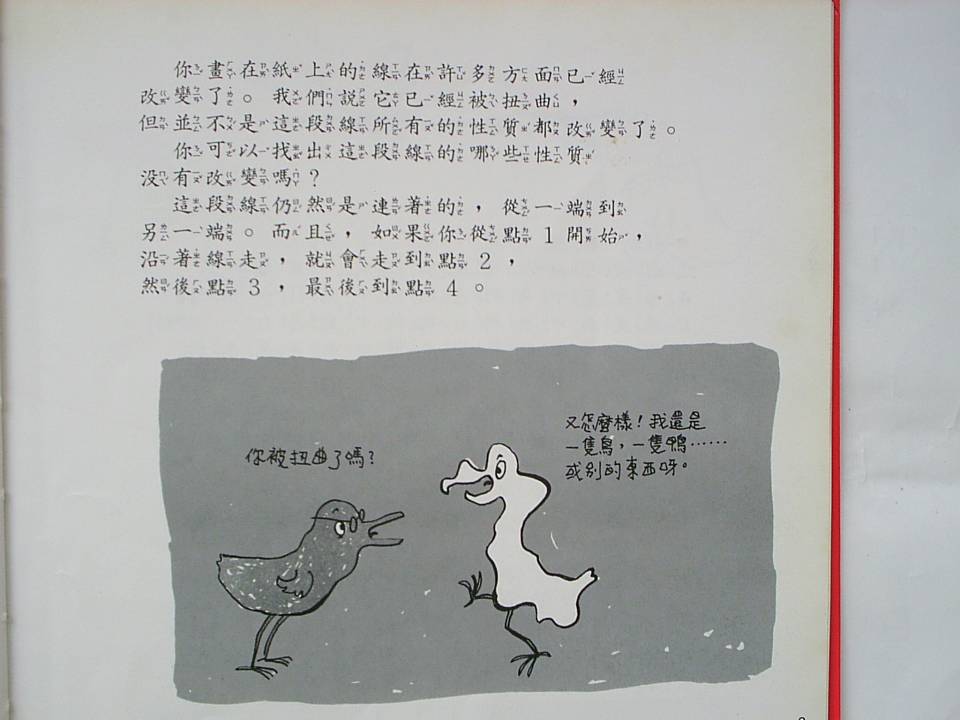 你畫在紙上的線在許多方面已經
改變了。我們說它已經被扭曲，
但並不是這段線所有的性質都改變了。
你可以找出這段線的哪些性質
沒有改變嗎？
這段線仍然是連著的，從一端到
另一端。而且，如果你從點1開始，
沿著線走，就會走到點2，
然後點3，最後到點4。
你被扭曲了嗎？
又怎麼樣！我還是
一隻鳥，一隻鴨……
或別的東西呀。